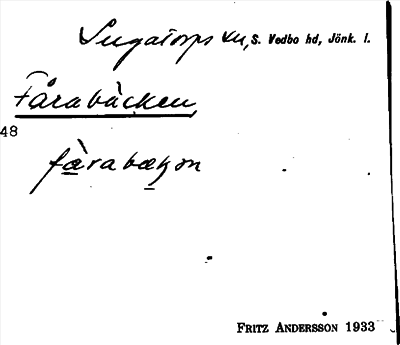 Lugatorps sn, S. Vedbo hd, Jönk. l.
Fårabäcken
48
fàrabækon
FRITZ ANDERSSON 1933